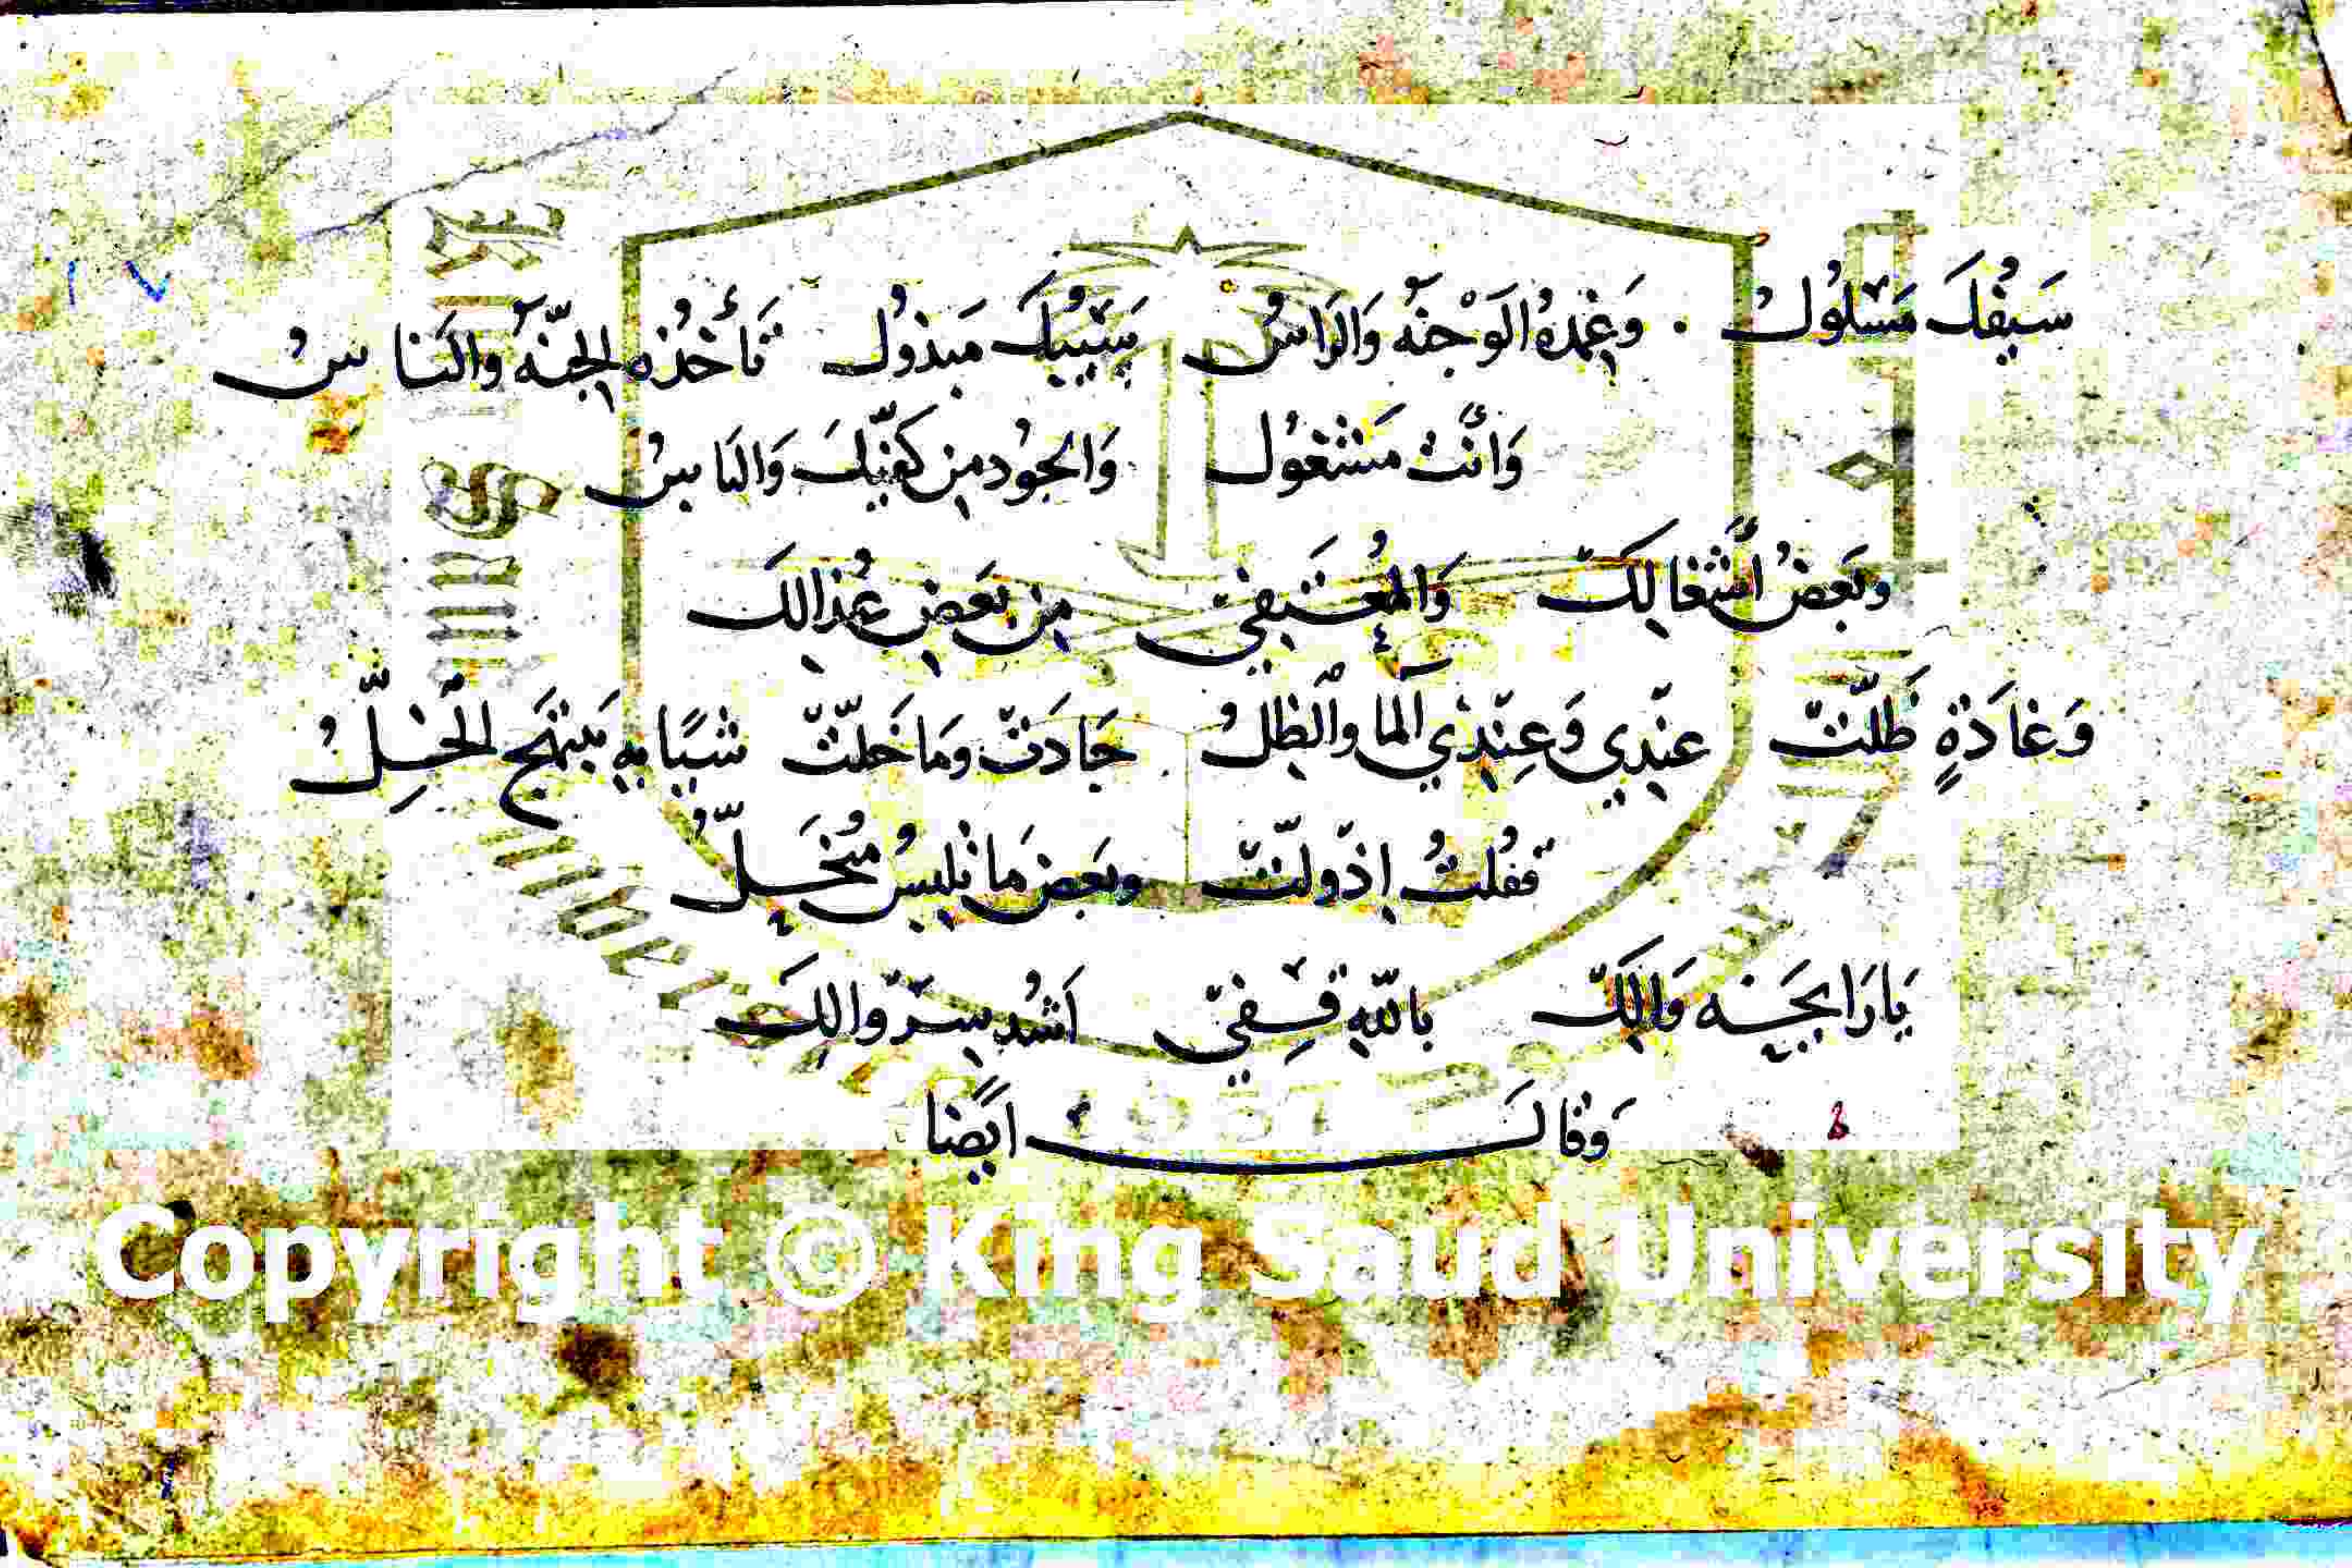 سَيْفُكَ مَسْلُوكْ . وَغِمْدُهُ الوَجْنَه وَالرَاسُ سَيْبُكَ مَبذوُل تَأخُذُه الجِنّه والنَاسْ
وَانْتَ مَشْغُول وَالجوُد مِن كَفّيكَ وَالنَاسْ
وبَعضُ اشْغَالِكَ وَالمُعْتَفِي مِن بَعَضِ عُذالِكَ
وَغَادَةٍ ظَلّتْ عنْدِي وَعِنْدِي المَا والظِلُ جَادَتْ وَمَا خَلّتْ شَيًا بِهِ يَبْتَهَج الخِلُّ
فقُلتُ إِذْ ولّتْ وبَعضَ مَا نُلبِسُ مُنْحَلُّ
يَارَا بحَيَه وَالِكَ بِاللهِ قِفِيْ اَشُد سِرْوَالِكَ
وَقالَ ايَضا
١٧
Copyright © King Saud University